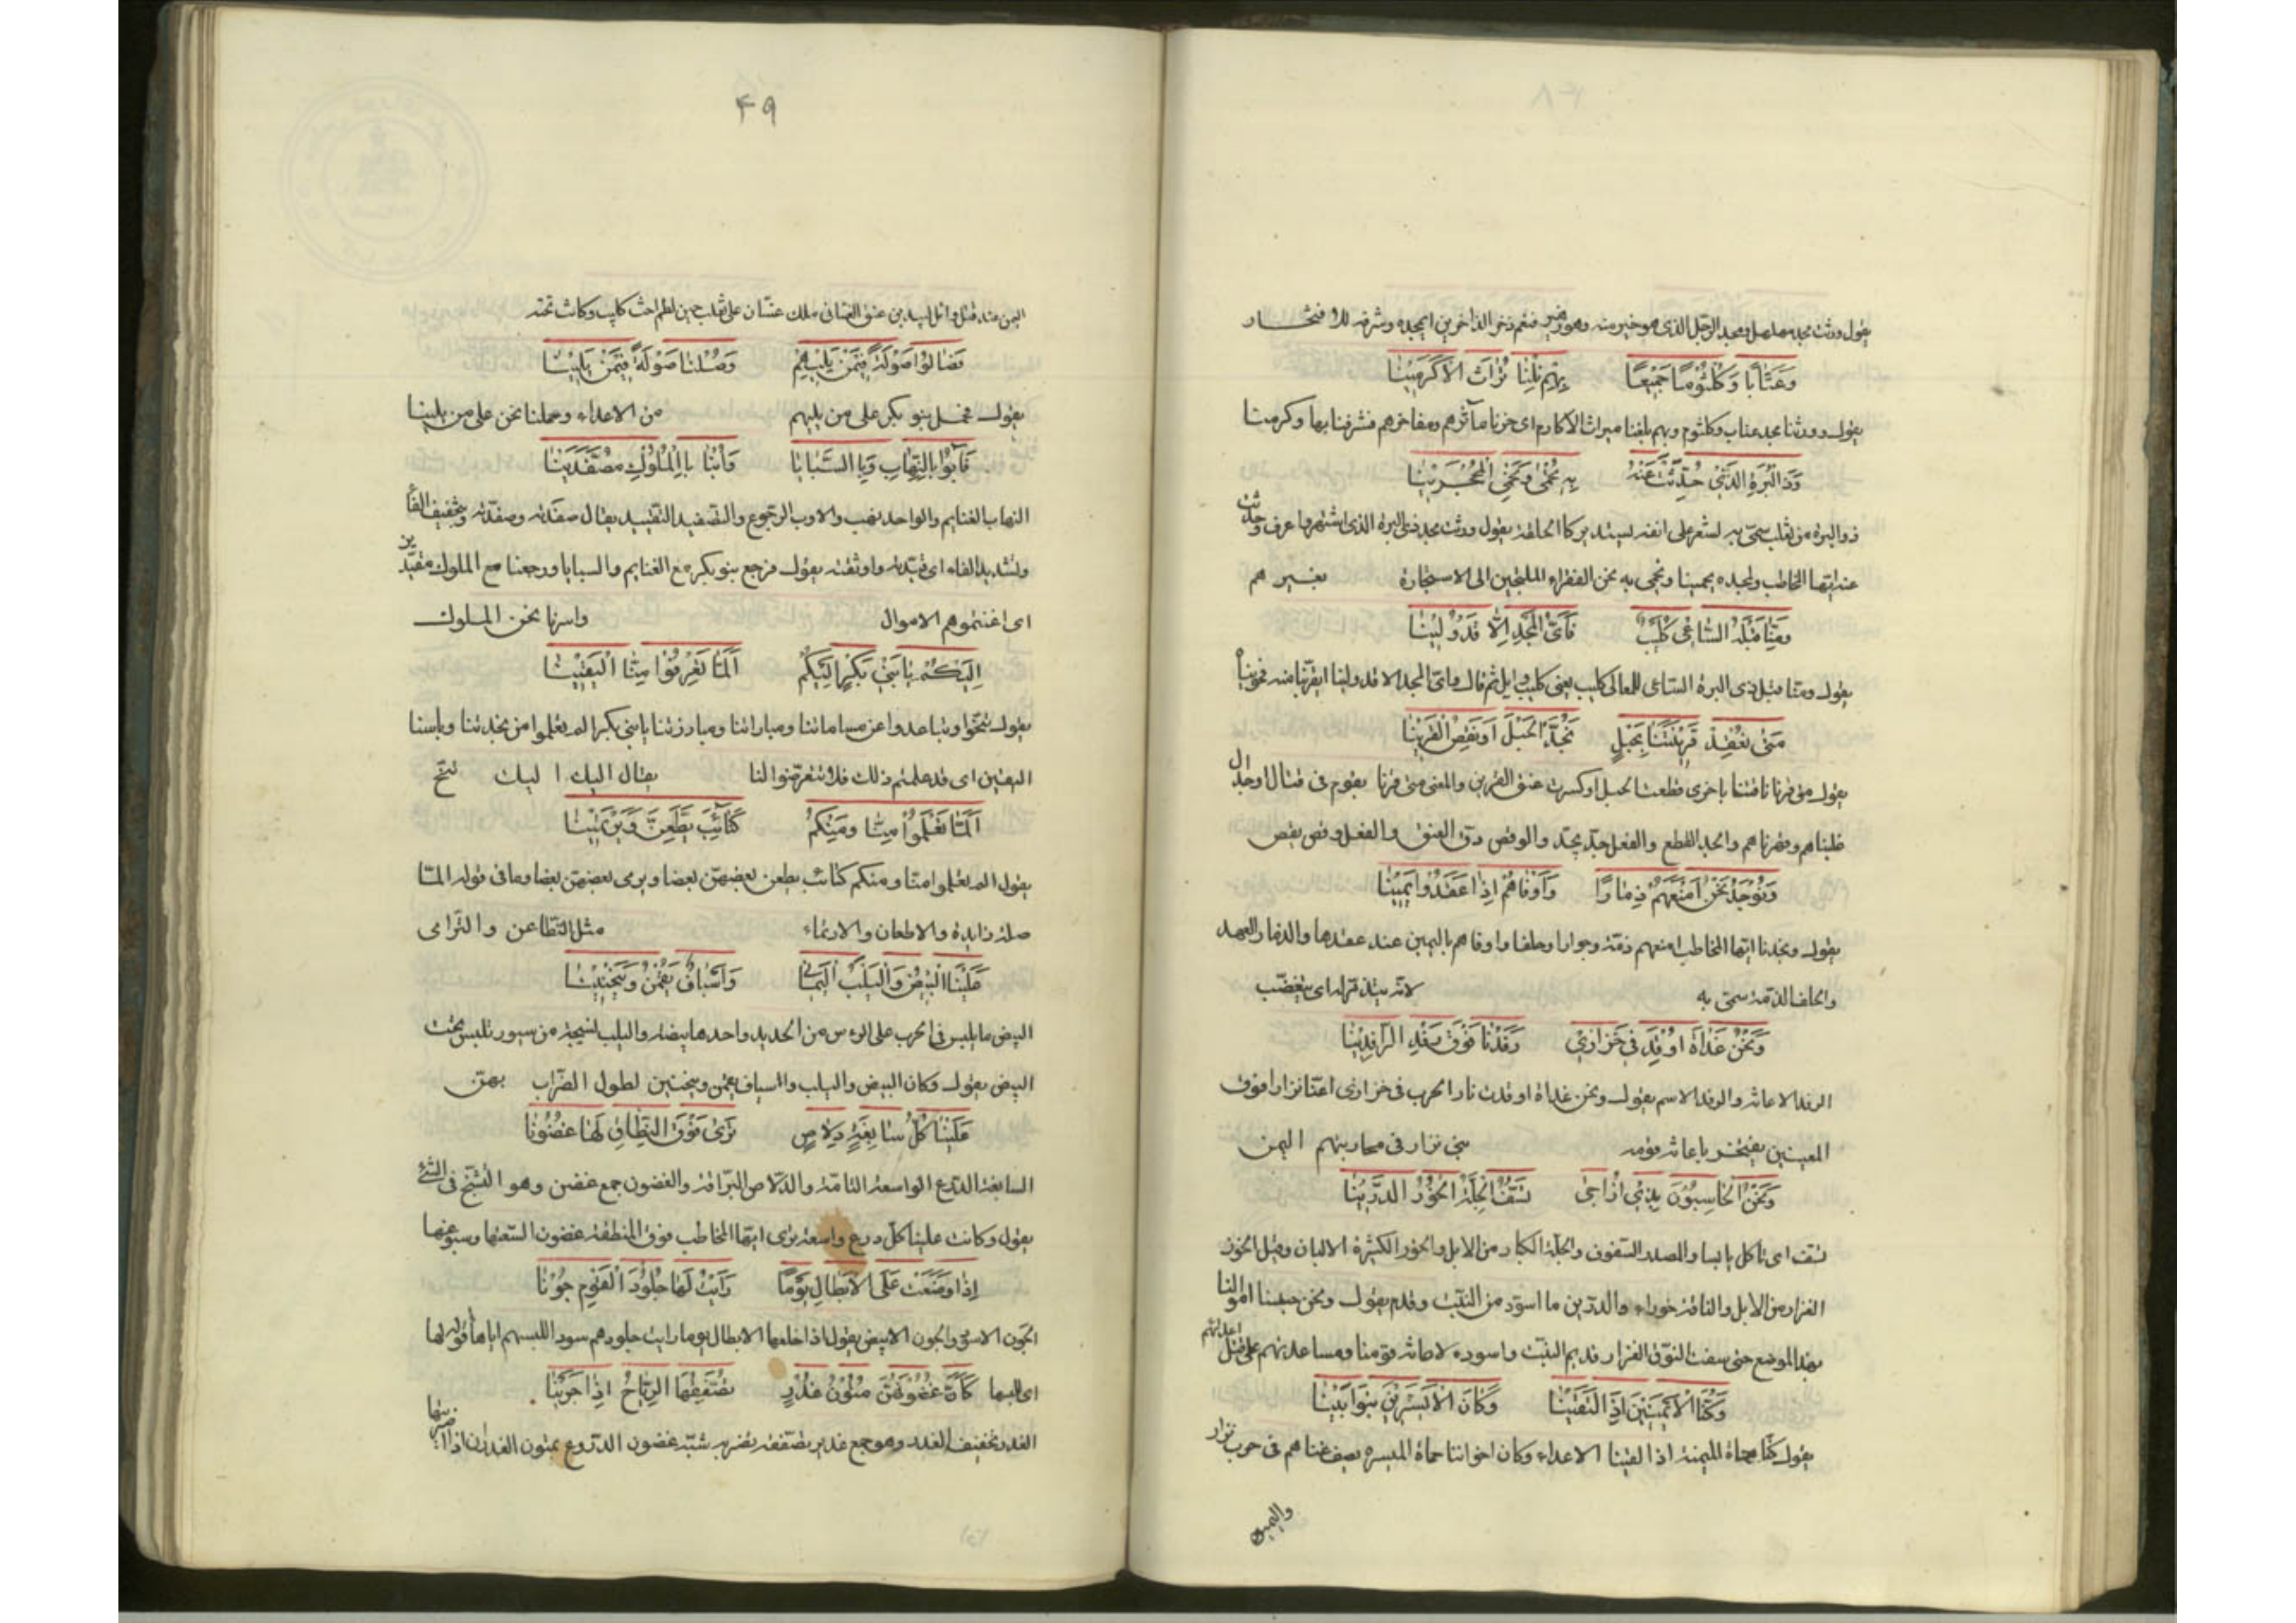 يقول ورثت مجد مهلهل ومجد الرجل الذى هو خير منه وهو زهير فنعم ذخر الذاخرين اى مجده وشرفه للافتخار
وَعَتَّابًا وَكُلْثُومًا جَمِيعًا بِهِمْ نِلْنَا تُرَاثَ الْاَكْرَمِيْنَا
يقول وورثنا مجد عتاب وكلثوم وبهم بلغنا ميراث الاكارم اى حزنا مآثرهم ومفاخرهم فشرفنا بها وكرمنا
وَذَا الْبُرَةِ الَّذِيْ حُدِّثْتَ عَنْهُ بِهِ نُحْمٰى وَنَحْمِي الْمُحْجَرِيْنَا
ذو البرة من تغلب سمّى به لشعر على انفه يستدير كالحلقة يقول وورثت مجد ذى البرة الذى اشتهر وعرف وحدثت
عنه ايها المخاطب وبمجده يحمينا ونحمى به نحن الفقراء الملجئين الى الاستجارة بغيرهم
وَمِنَّا قَبْلَهُ السَّاعِى كُلَيْبٌ فَاَىُّ الْمَجْدِ اِلَّا قَدْ وَلِيْنَا
يقول ومنا قبل ذى البرة الساعى للمعالى كليب يعنى كليب وايل ثم قال واى المجد الا قد ولينا اى قربنا منه فحويناه
مَتٰى نَعْقِدْ قَرِيْنَتَنَا بِحَبْلٍ نَجُذُّ الْحَبْلَ اَوْ نَقِصِ الْقَرِيْنَا
يقول متى قرنا ناقتنا باخرى قطعت الحبل او كسرت عنق القرين والمعنى متى قرنا بقوم فى قتال او جدال
غلبناهم وقهرناهم والجذ القطع والفعل جذ يجذ والوقص دق العنق والفعل وقص يقص
وَنُوْجَدُ نَحْنُ اَمْنَعَهُمْ ذِمَارًا وَاَوْفَاهُمْ اِذَا عَقَدُوا يَمِيْنَا
يقول وتجدنا ايها المخاطب امنعهم ذمة وجوارا وحلفا واوفاهم باليمين عند عقدها والذمار العهد
والحلف الذمة سمى به لانه يتذمر له اى يتغضب
وَنَحْنُ غَدَاةَ اُوْقِدَ فِي خَزَازٰى رَفَدْنَا فَوْقَ رِفْدِ الرَّافِدِيْنَا
الرفد الاعانة والرفد الاسم يقول ونحن غداة اوقدت نار الحرب فى خزازى اعنا نزارا فوق
المعينين يفتخر باعانة قومه بنى نزار فى محاربتهم اليمن
وَنَحْنُ الْحَابِسُوْنَ بِذِيْ اُرَاطٰى تَسَفُّ الْجِلَّةُ الْخُوْرُ الدَّرِيْنَا
تسف اى تاكل يابسا والمصدر السفوف والجلة الكبار من الابل والخور الكثيرة الالبان وقيل الخور
الغزار من الابل والناقة خوراء والدرين ما اسود من النبت وقدم يقول ونحن حبسنا اموالنا
بهذا الموضع حتى سفت النوق الغزار قديم النبت واسوده لاعانة قومنا ومساعدتهم على قتل اعدائهم
وَكُنَّا الْاَيْمَنِيْنَ اِذَا الْتَقَيْنَا وَكَانَ الْاَيْسَرِيْنَ بَنُوا اَبِيْنَا
يقول كنا حماة الميمنة اذا لقينا الاعداء وكان اخواننا حماة الميسرة يصف غناهم فى حرب نزار
واليمن
۴۹
اليمن عند قتل وائل لبيد بن عنق الغسانى ملك غسان على تغلب حين لطم اخت كليب وكانت تحته
فَصَالُوْا صَوْلَةً فِيْمَنْ يَلِيْهِمْ وَصُلْنَا صَوْلَةً فِيْمَنْ يَلِيْنَا
يقول فحمل بنو بكر على من يليهم من الاعداء وحملنا نحن على من يلينا
فَاٰبُوْا بِالنِّهَابِ وَبِالسَّبَايَا وَاُبْنَا بِالْمُلُوْكِ مُصَفَّدِيْنَا
النهاب الغنايم والواحد نهب والاوب الرجوع والتصفيد التقييد يقال صفدته وصفدته بتخفيف الفاء
وتشديد الفاء اى قيدته واوثقته يقول فرجع بنو بكر مع الغنايم والسبايا ورجعنا مع الملوك مقيدين
اى اغتنموهم الاموال واسرنا نحن الملوك
اِلَيْكُمْ يَا بَنِيْ بَكْرٍ اِلَيْكُمْ اَلَمَّا تَعْرِفُوْا مِنَّا الْيَقِيْنَا
يقول تنحوا وتباعدوا عن مساماتنا ومباراتنا ومبارزتنا يا بنى بكر الم تعلموا من نجدتنا وباسنا
اليقين اى قد علمتم ذلك فلا تتعرضوا لنا يقال اليك اليك تنح
اَلَمَّا تَعْلَمُوْا مِنَّا وَمِنْكُمْ كَتَائِبَ يَطَّعِنَّ وَيَرْتَمِيْنَا
يقول الم تعلموا منا ومنكم كتائب يطعن بعضهن بعضا ويرمى بعضهن بعضا وما فى قوله الما
صلة زايدة والاطعان والارتماء مثل التطاعن والترامى
عَلَيْنَا الْبَيْضُ وَالْيَلَبُ الْيَمَانِيْ وَاَسْيَافٌ يَقُمْنَ وَيَنْحَنِيْنَا
البيض ما يلبس فى الحرب على الرءوس من الحديد واحدها بيضة واليلب نسيجة من سيور تلبس تحت
البيض يقول وكان البيض واليلب واسياف يقمن وينحنين لطول الضراب بهن
عَلَيْنَا كُلُّ سَابِغَةٍ دِلَاصٍ تَرٰى فَوْقَ النِّطَاقِ لَهَا غُضُوْنَا
السابغة الدرع الواسعة التامة والدلاص البراقة والغضون جمع غضن وهو التشنج فى الشىء
يقول وكانت علينا كل درع واسعة ترى ايها المخاطب فوق المنطقة غضون السعتها وسبوغها
اِذَا وُضِعَتْ عَلَى الْاَبْطَالِ يَوْمًا رَاَيْتَ لَهَا جُلُوْدَ الْقَوْمِ جُوْنَا
الجون الاسود والجون الابيض يقول اذا خلعها الابطال يوما رايت جلودهم سودا للبسهم اياها قوله لها
اى للبسها كَاَنَّ غُضُوْنَهُنَّ مُتُوْنُ غُدْرٍ تُصَفِّقُهَا الرِّيَاحُ اِذَا جَرَيْنَا
الغدر تخفيف الغدر وهو جمع غدير تصفقه تضربه شبه غضون الدروع بمتون الغدران اذا ضربتها